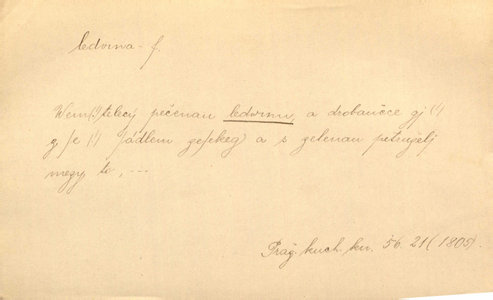 ledvina - f.
Wem(!) telecý pečenau ledwinu, a drobaučce gj (!)
z /e (!) /ádlem ze/ekeg) a s zelenau petruželj
megy to, ---
Praž. kuch. kn. 56. 21 (1805).